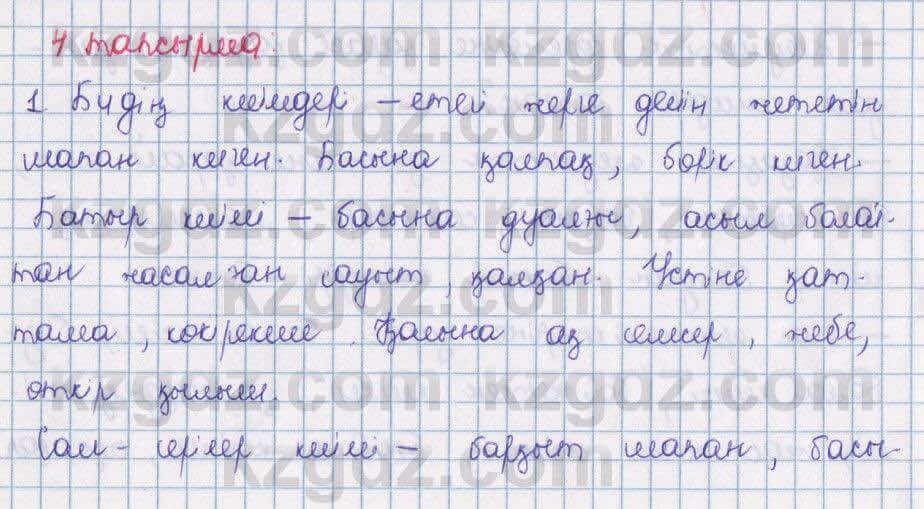 4 тапсырма:
1 Бидің киімдері – етегі жерге дейін жететін
шапан киген. Басына қалпақ, бөрік киген.
Батыр киімі – басына дулыға, асыл болат-
тан жасалған сауыт, қалқан. Үстіне қат-
тама, көкрекше. Қолына ақ семсер, жебе,
өткір қылыш.
Сал-серілер киімі – барқыт шапан, басы-